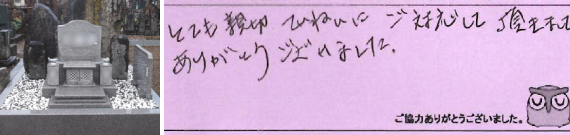 とても親切 ていねいに ご対応して頂きまして
ありがとうございました。
ご協力ありがとうございました。